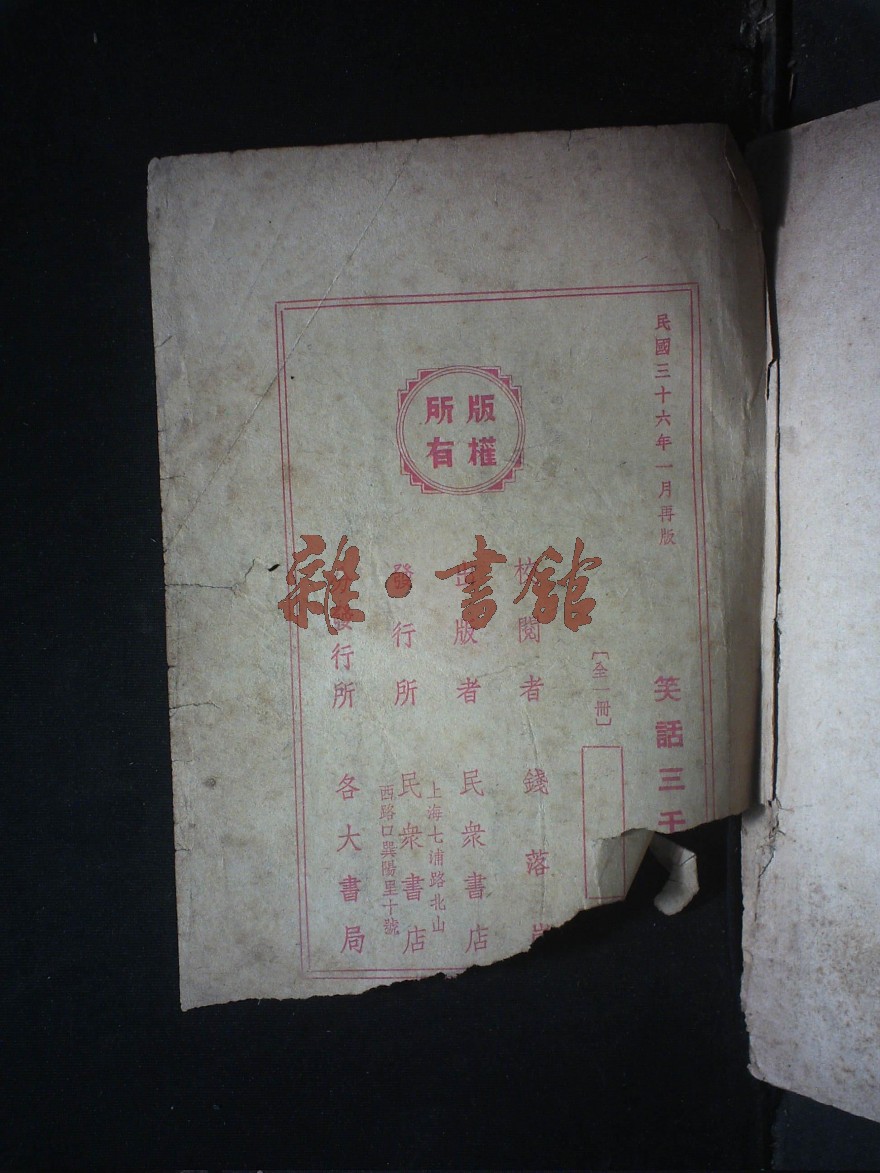 民國三十六年一月再版
笑話三千
〔全一冊〕
校閱者 錢落
出版者 民衆書店
發行所 民衆書店
上海七浦路北山
西路口巽陽里十號
發行所 各大書局
版權
所有
雜·書館